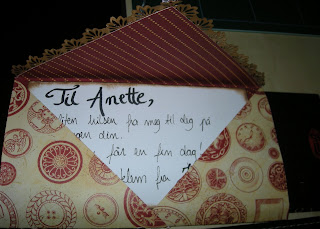 Til Anette,
liten hilsen fra meg til deg på
gen din.
får en fin dag!
klem fra